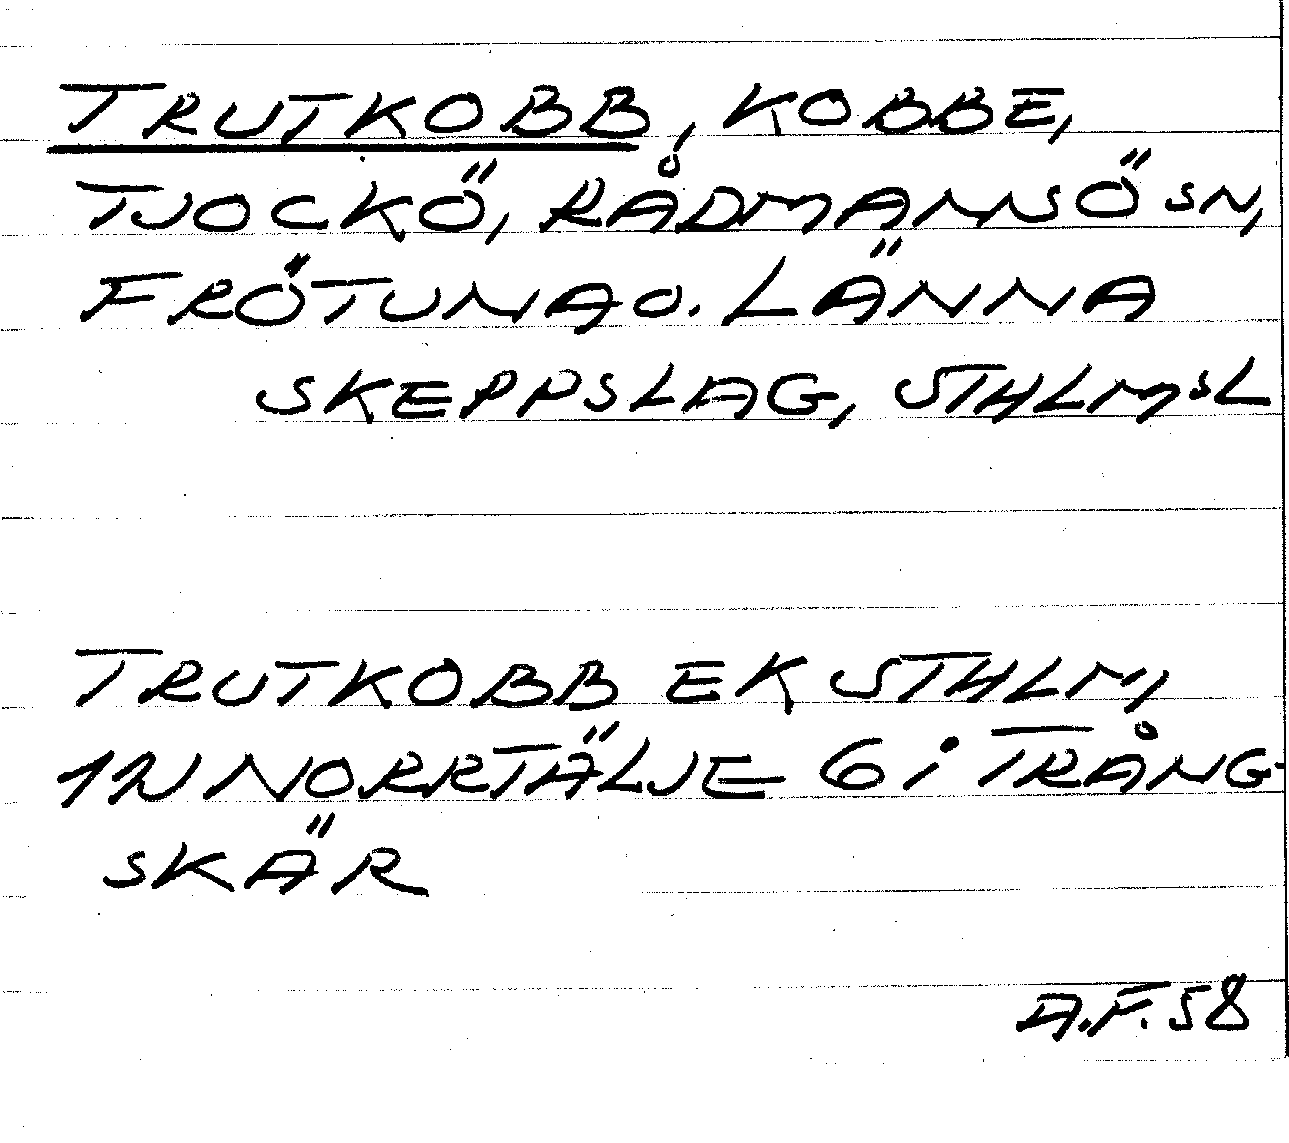 TRUTKOBB, KOBBE,
TJOCKÖ, RÅDMANSÖ SN,
FRÖTUNA O. LÄNNA
SKEPPSLAG, STHLMSL
TRUTKOBB EK STHLM,
12 NORRTÄLJE 6 i TRÅNG-
SKÄR
A.F. 58